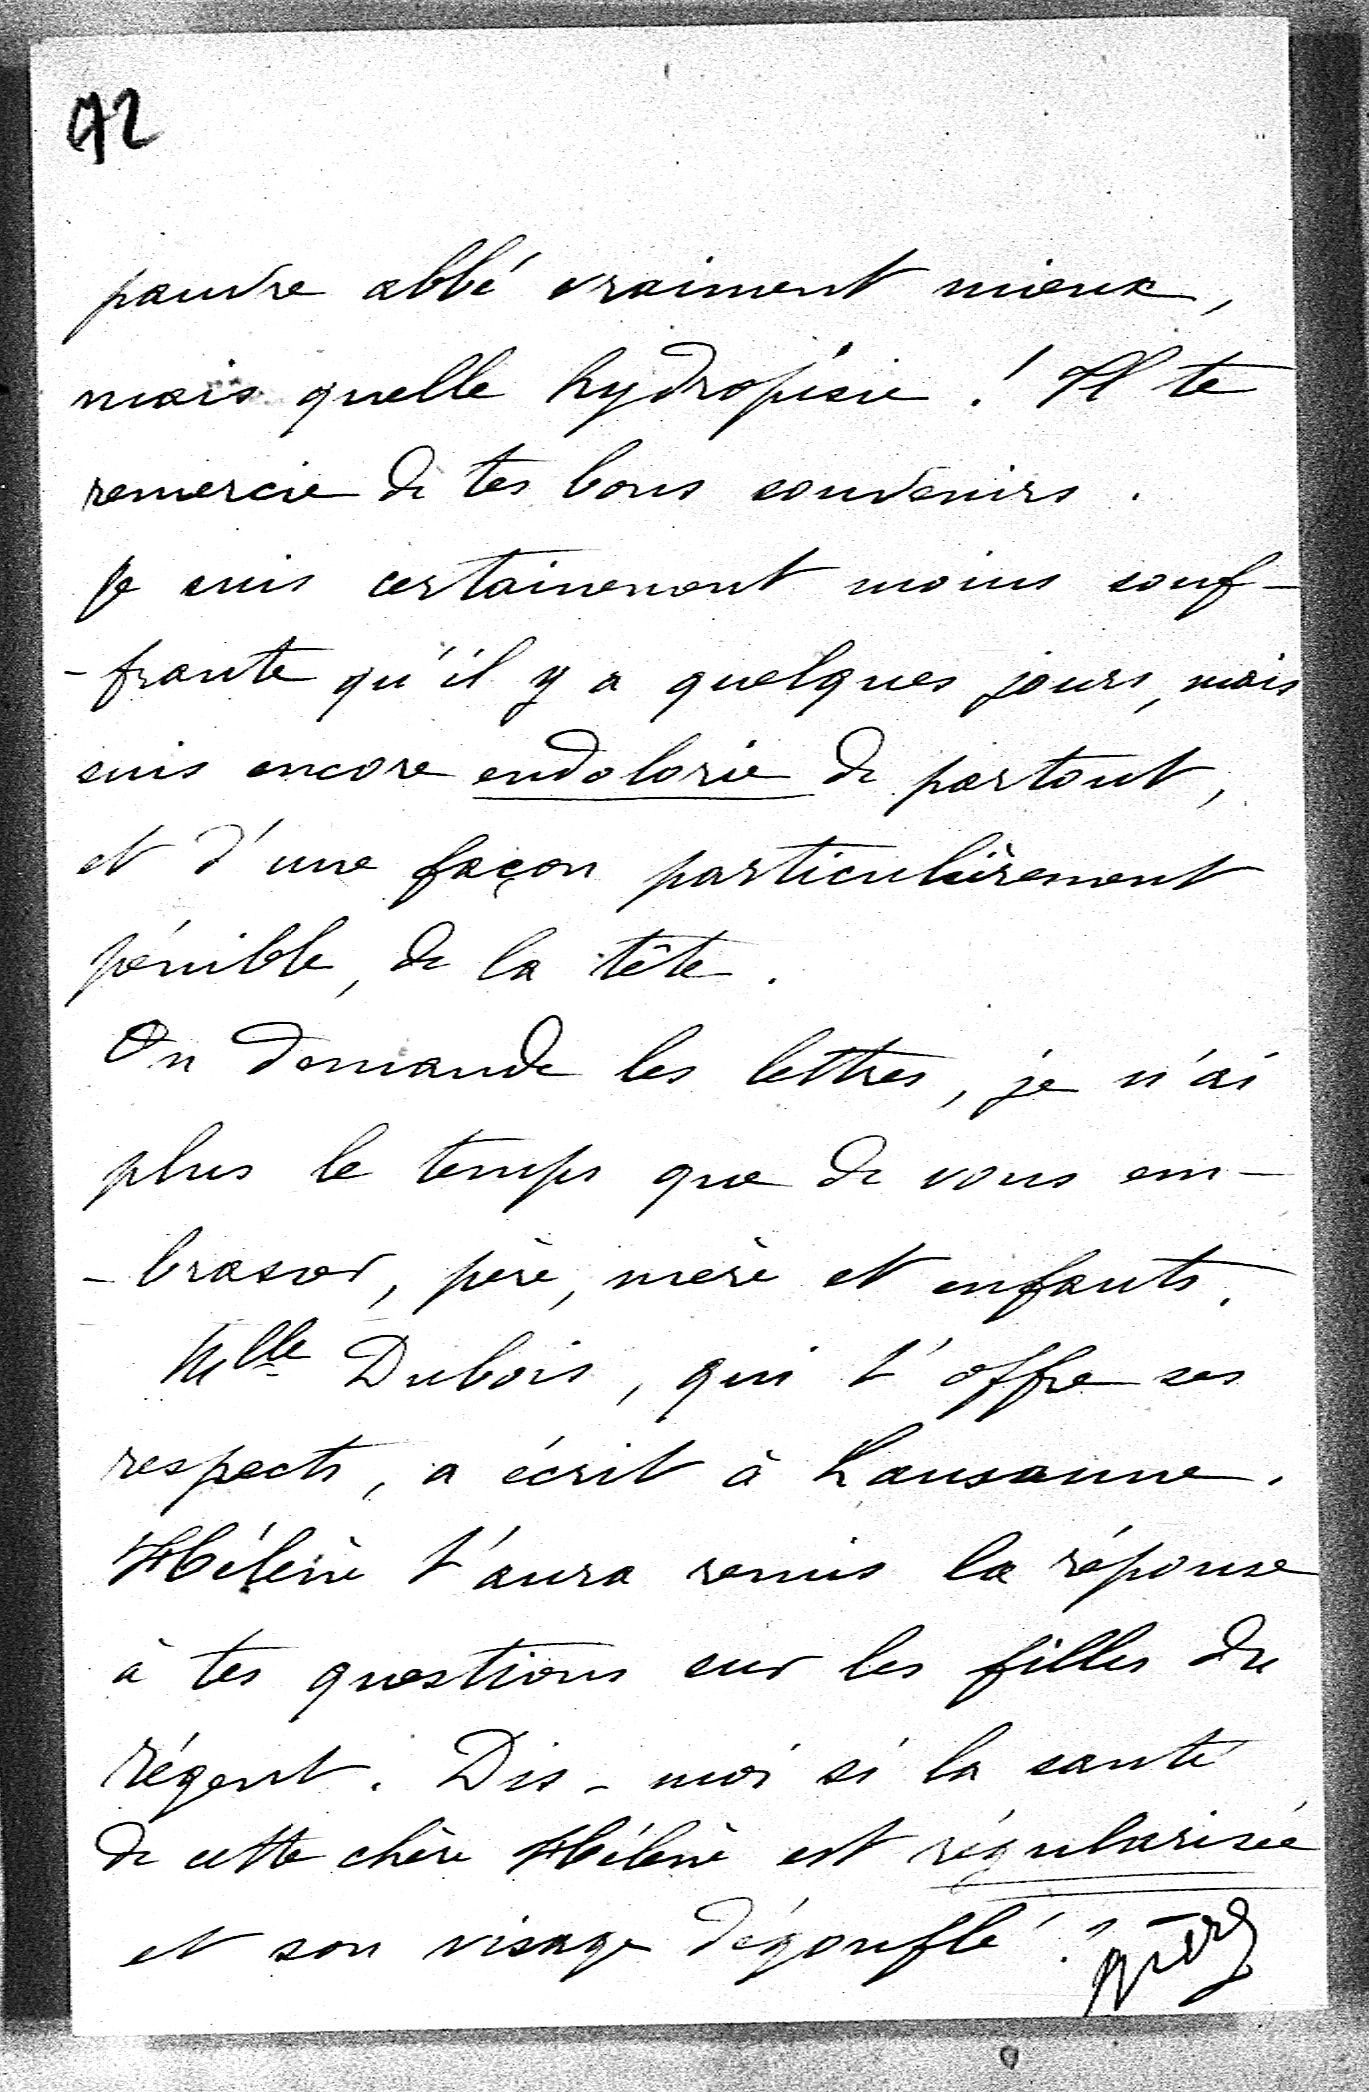 72
pauvre abbé vraiment mieux,
mais quelle hydropisie ! Il te
remercie de tes bons souvenirs.
Je suis certainement moins souf-
-frante qu'il y a quelques jours, mais
suis encore endolorie de partout,
et d'une façon particulièrement
pénible, de la tête.
On demande les lettres, je n'ai
plus le temps que de vous em-
-brasser, père, mère et enfants.
Mlle Dubois, qui t'offre ses
respects, a écrit à Lausanne.
Hélène t'aura remis la réponse
à tes questions sur les filles du
régent. Dis-moi si la santé
de cette chère Hélène est régularisée
et son visage dégonflé ?